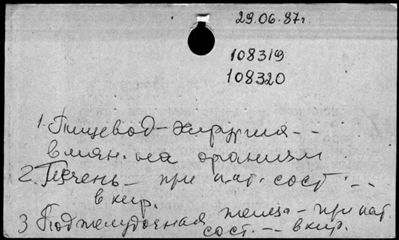 29.06.87г.
108319
108320
1. Пищевод-хирургия --
влиян. на организм
2. Печень - при пат. сост. --
в хир.
3 Поджелудочная железа - при пат.
сост. -- в хир.